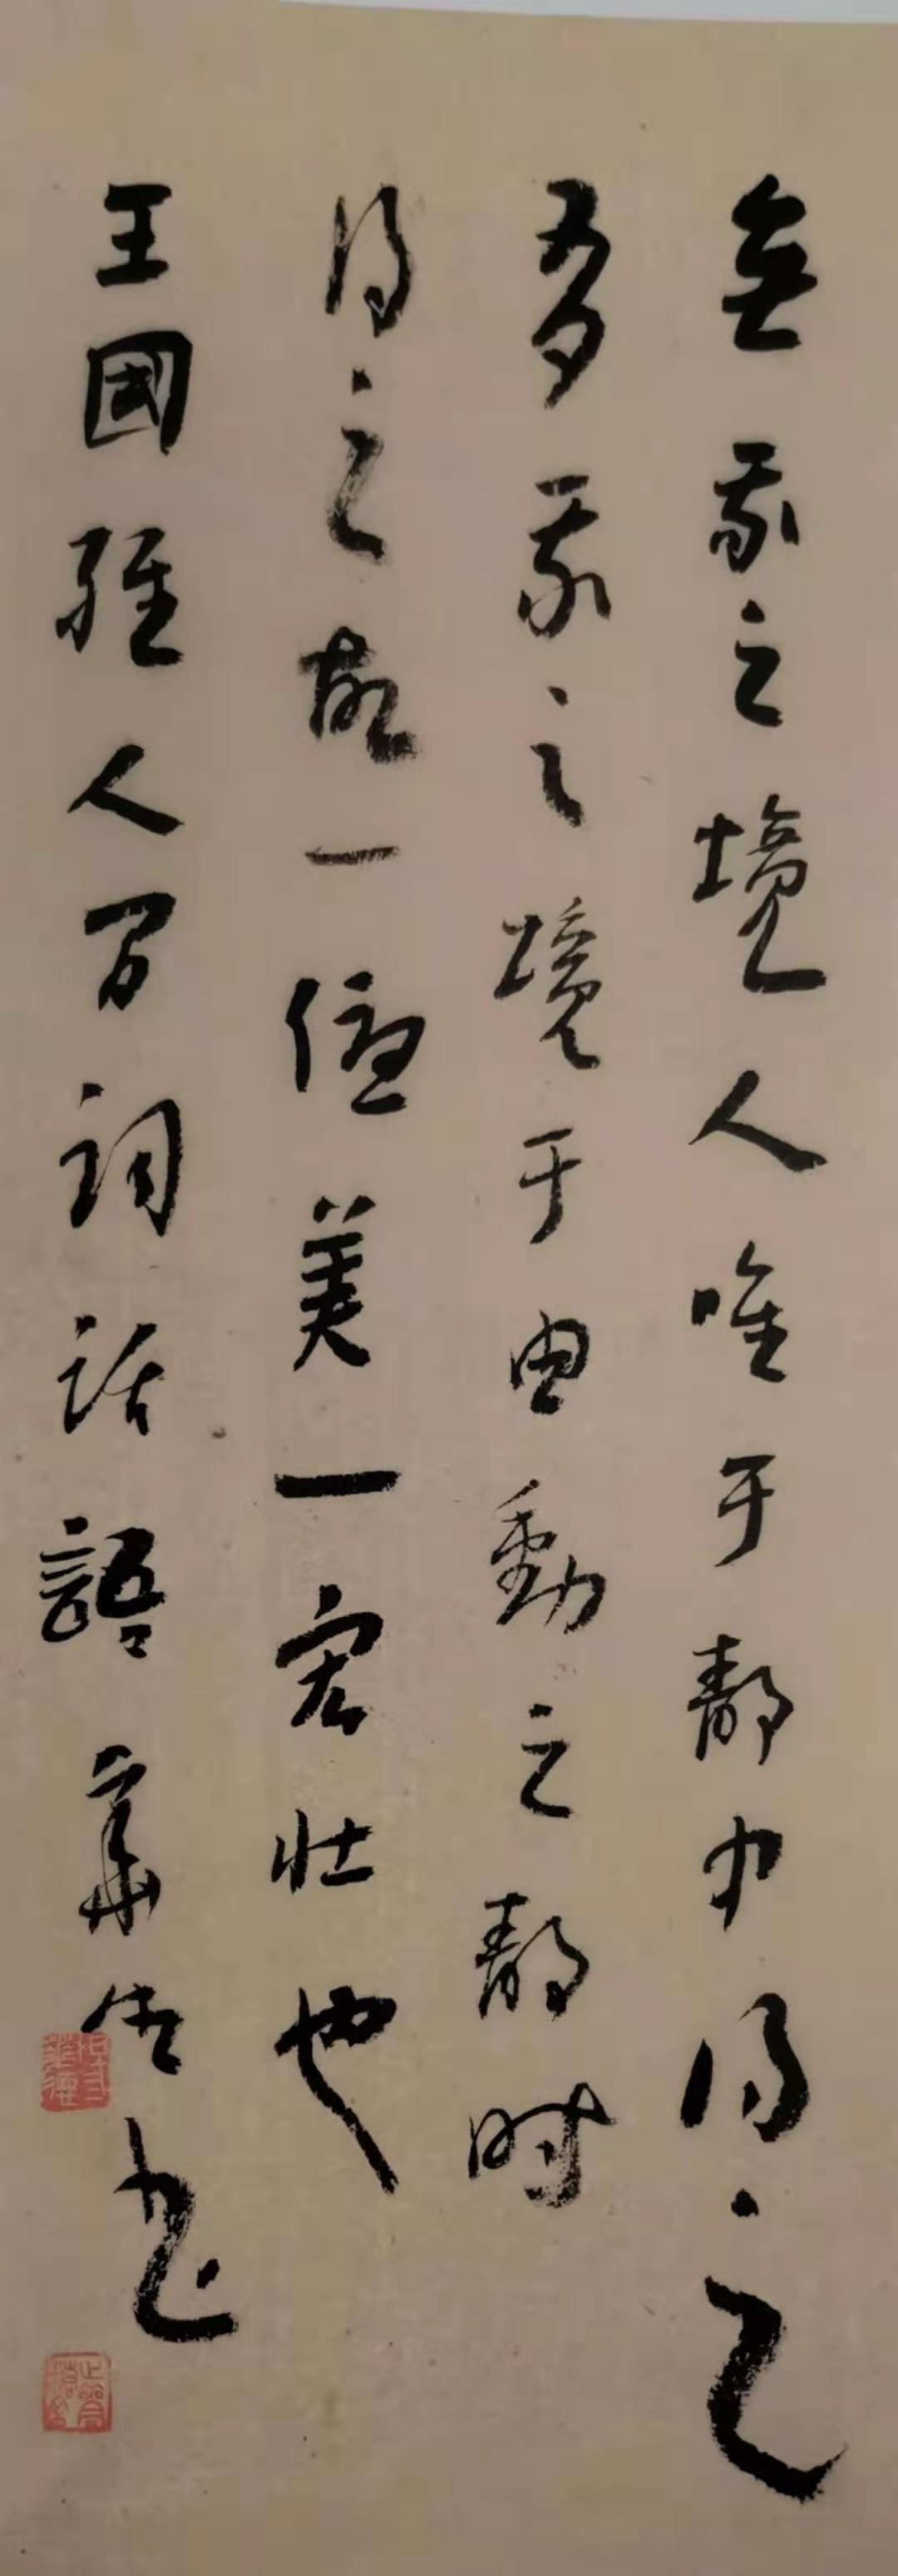 無我之境人唯于靜中得之
有我之境于由動之靜時
得之故一優美一宏壯也
王國維人間詞話語 書